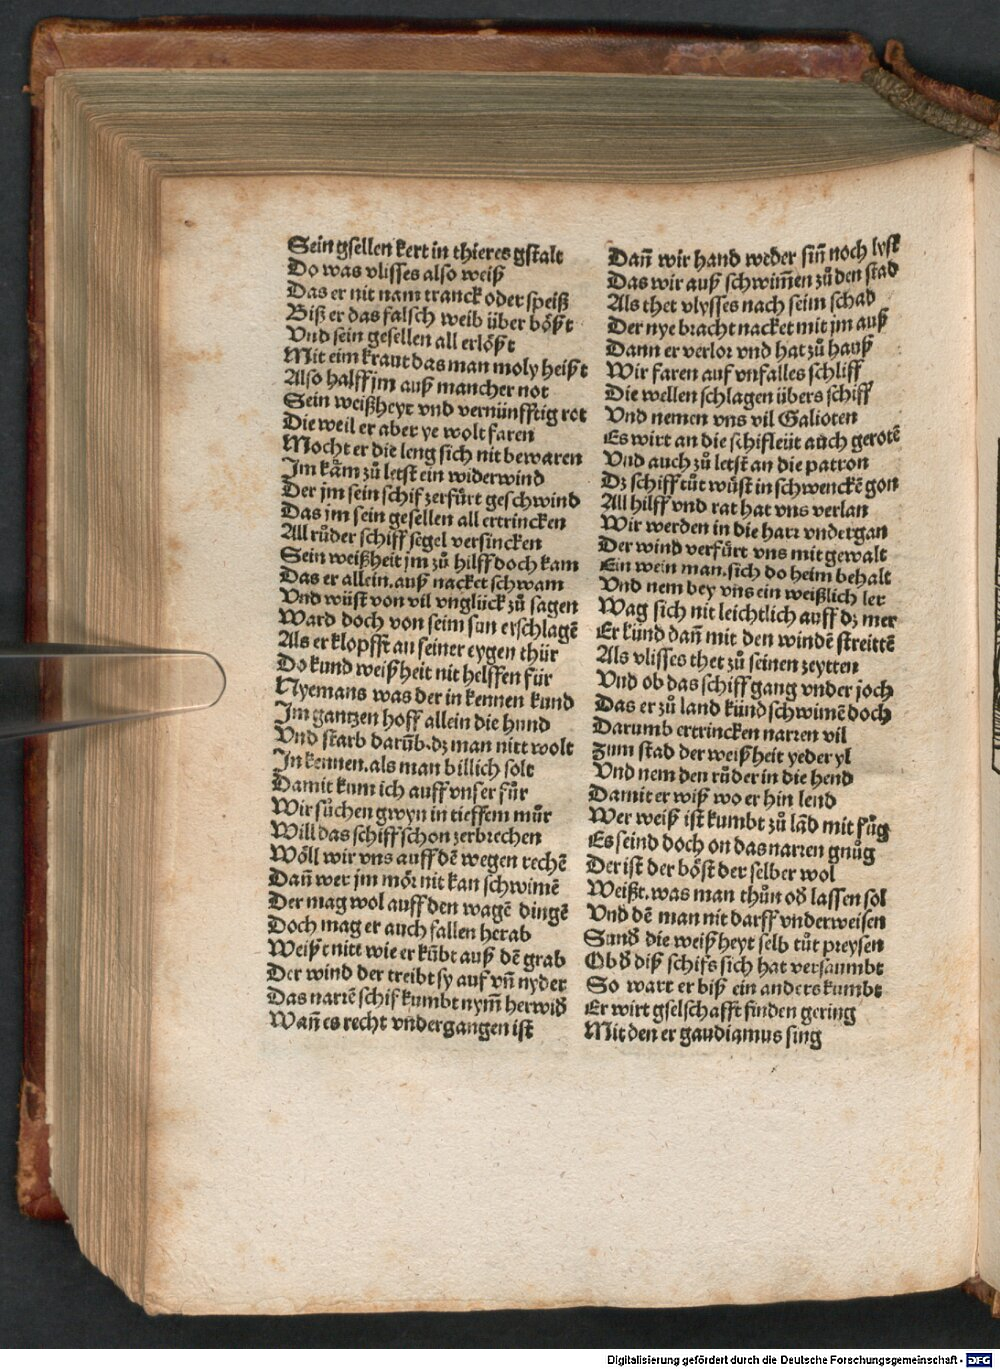 Sein gsellen kert in thieres gstalt
Do was vlisses also weiß
Das er nit nam tranck oder speiß
Biß er das falsch weib über bößt
Vnd sein gesellen all erlößt
Mit eim kraut das man moly heißt
Also halff jm auß mancher not
Sein weißheyt vnd vernünfftig rot
Die weil er aber ye wolt faren
Mocht er die leng sich nit bewaren
Im kam zů letst ein widerwind
Der jm sein schif zerfürt geschwind
Das jm sein gesellen all ertrincken
All růder schiff segel versincken
Sein weißheit jm zů hilff doch kam
Das er allein. auß nacket schwam
Vnd wüst von vil vnglück zů sagen
Ward doch von seim sun erschlagē
Als er klopfft an seiner eygen thür
Do kund weißheit nit helffen für
Nyemans was der in kennen kund
Im gantzen hoff allein die hund
Vnd starb darūb. dz man nitt wolt
In kennen. als man billich solt
Damit kum ich auff vnser für
Wir sůchen gwyn in tieffem můr
Will das schiff schon zerbrechen
Wöll wir vns auff dē wegen rechē
Dañ wer jm mör nit kan schwimē
Der mag wol auff den wagē dingē
Doch mag er auch fallen herab
Weißt nitt wie er kūbt auß dē grab
Der wind der treibt sy auf vñ nyder
Das narrē schif kumbt nym̄ herwiđ
Wañ es recht vndergangen ist
Dañ wir hand weder siñ noch lyst
Das wir auß schwim̄en zů den stad
Als thet vlysses nach seim schad
Der nye bracht nacket mit jm auß
Dann er verlor vnd hat zů hauß
Wir faren auf vnfalles schliff
Die wellen schlagen übers schiff
Vnd nemen vns vil Galioten
Es wirt an die schifleüt auch gerotē
Vnd auch zů letst an die patron
Dz schiff tůt wüst in schwenckē gon
All hilff vnd rat hat vns verlan
Wir werden in die harr vndergan
Der wind verfürt vns mit gewalt
Ein wein man. sich do heim behalt
Vnd nem bey vns ein weißlich ler
Wag sich nit leichtlich auff dz mer
Er künd dañ mit den windē streittē
Als vlisses thet zů seinen zeytten
Vnd ob das schiff gang vnder joch
Das er zů land künd schwimē doch
Darumb ertrincken narren vil
Zum stad der weißheit yeder yl
Vnd nem den růder in die hend
Damit er wiß wo er hin lend
Wer weiß ist kumbt zů lād mit fůg
Es seind doch on das narren gnůg
Der ist der böst der selber wol
Weißt. was man thůn ođ lassen sol
Vnd dē man nit darff vnderweisen
Sunđ die weißheyt selb tůt preysen
Ob đ diß schifs sich hat versaumbt
So wart er biß ein anders kumbt
Er wirt gselschafft finden gering
Mit den er gaudiamus sing
Digitalisierung gefördert durch die Deutsche Forschungsgemeinschaft - DFG